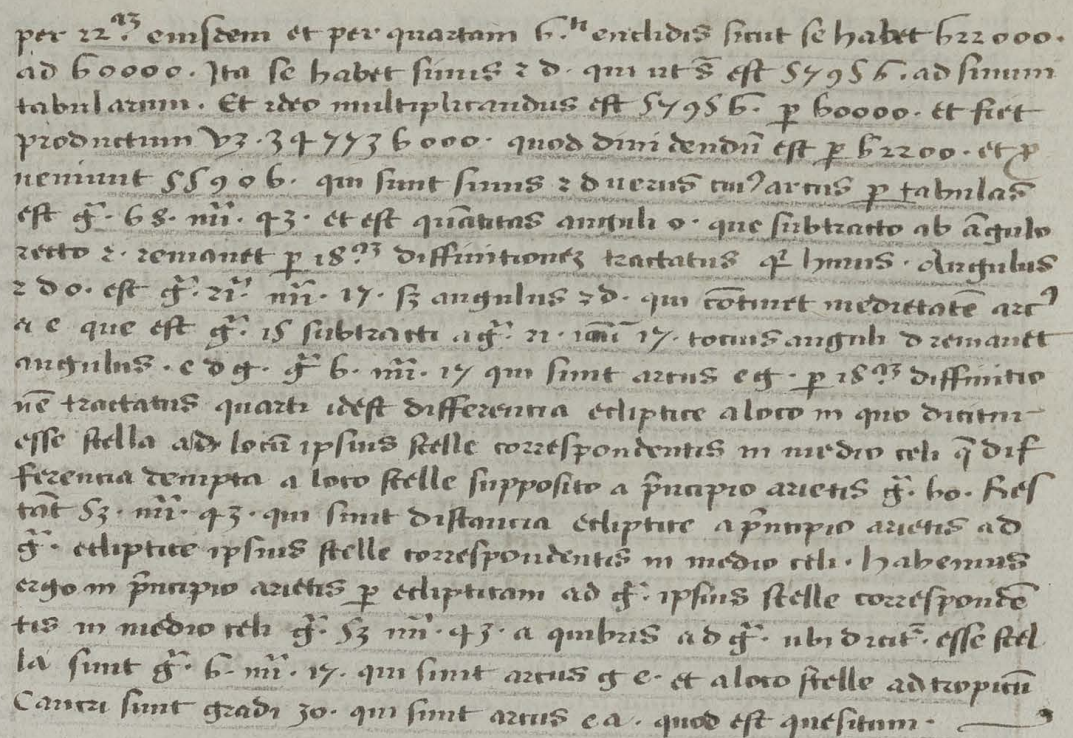 per 22ªʒ eiusdem et per quartam 6ti euclidis sicut se habet 622000.
ad 60000. Ita se habet sinus z d. qui ut s̄ est 57956. ad sinum
tabularum. Et ideo multiplicandus est 57956. ꝑ 60000. et fiet
productum vʒ. 347736000. quod diuidendū est ꝑ 62200. et ꝓ
ueniunt 55906. qui sunt sinus z d uerus cuiꝰ arcus ꝑ tabulas
est gͣ. 68. mͥ. 43. et est quātitas anguli o. que subtracto ab āgulo
recto z. remanet ꝑ 18ªʒ diffinitioneʒ tractatus qͬ huius. Angulus
z d o. est gͣ. 21. mͥ. 17. sʒ angulus z d. qui cōtinet medietatē arcꝰ
a e que est gͣ. 15 subtracti a gͣ. 21. mͥ 17. tocius anguli d remanet
angulus. e d g. gͣ 6. mͥ. 17 qui sunt arcus e g. ꝑ 18ªʒ diffinitio
nē tractatus quarti idest differentia ecliptice a loco in quo dicitur
esse stella ad locū ipsius stelle correspondentis in medio celi q̄ dif
ferencia dempta a loco stelle supposito a p̄ncipio arietis gͣ. 60. Res
tāt 53. mͥ. 43. qui sunt distancia ecliptice a p̄ncipio arietis ad
gͣ. ecliptice ipsius stelle correspondentis in medio celi. habemus
ergo in p̄ncipio arietis ꝑ eclipticam ad gͣ. ipsius stelle correspondē
tis in medio celi gͣ. 53 mͥ. 43. a quibus ad gͣ. ubi dicit̄. esse stel
la sunt gͣ. 6. mͥ. 17. qui sunt arcus g e. et a loco stelle ad tropicū
Cancri sunt gradi 30. qui sunt arcus e a. quod est quesitum.